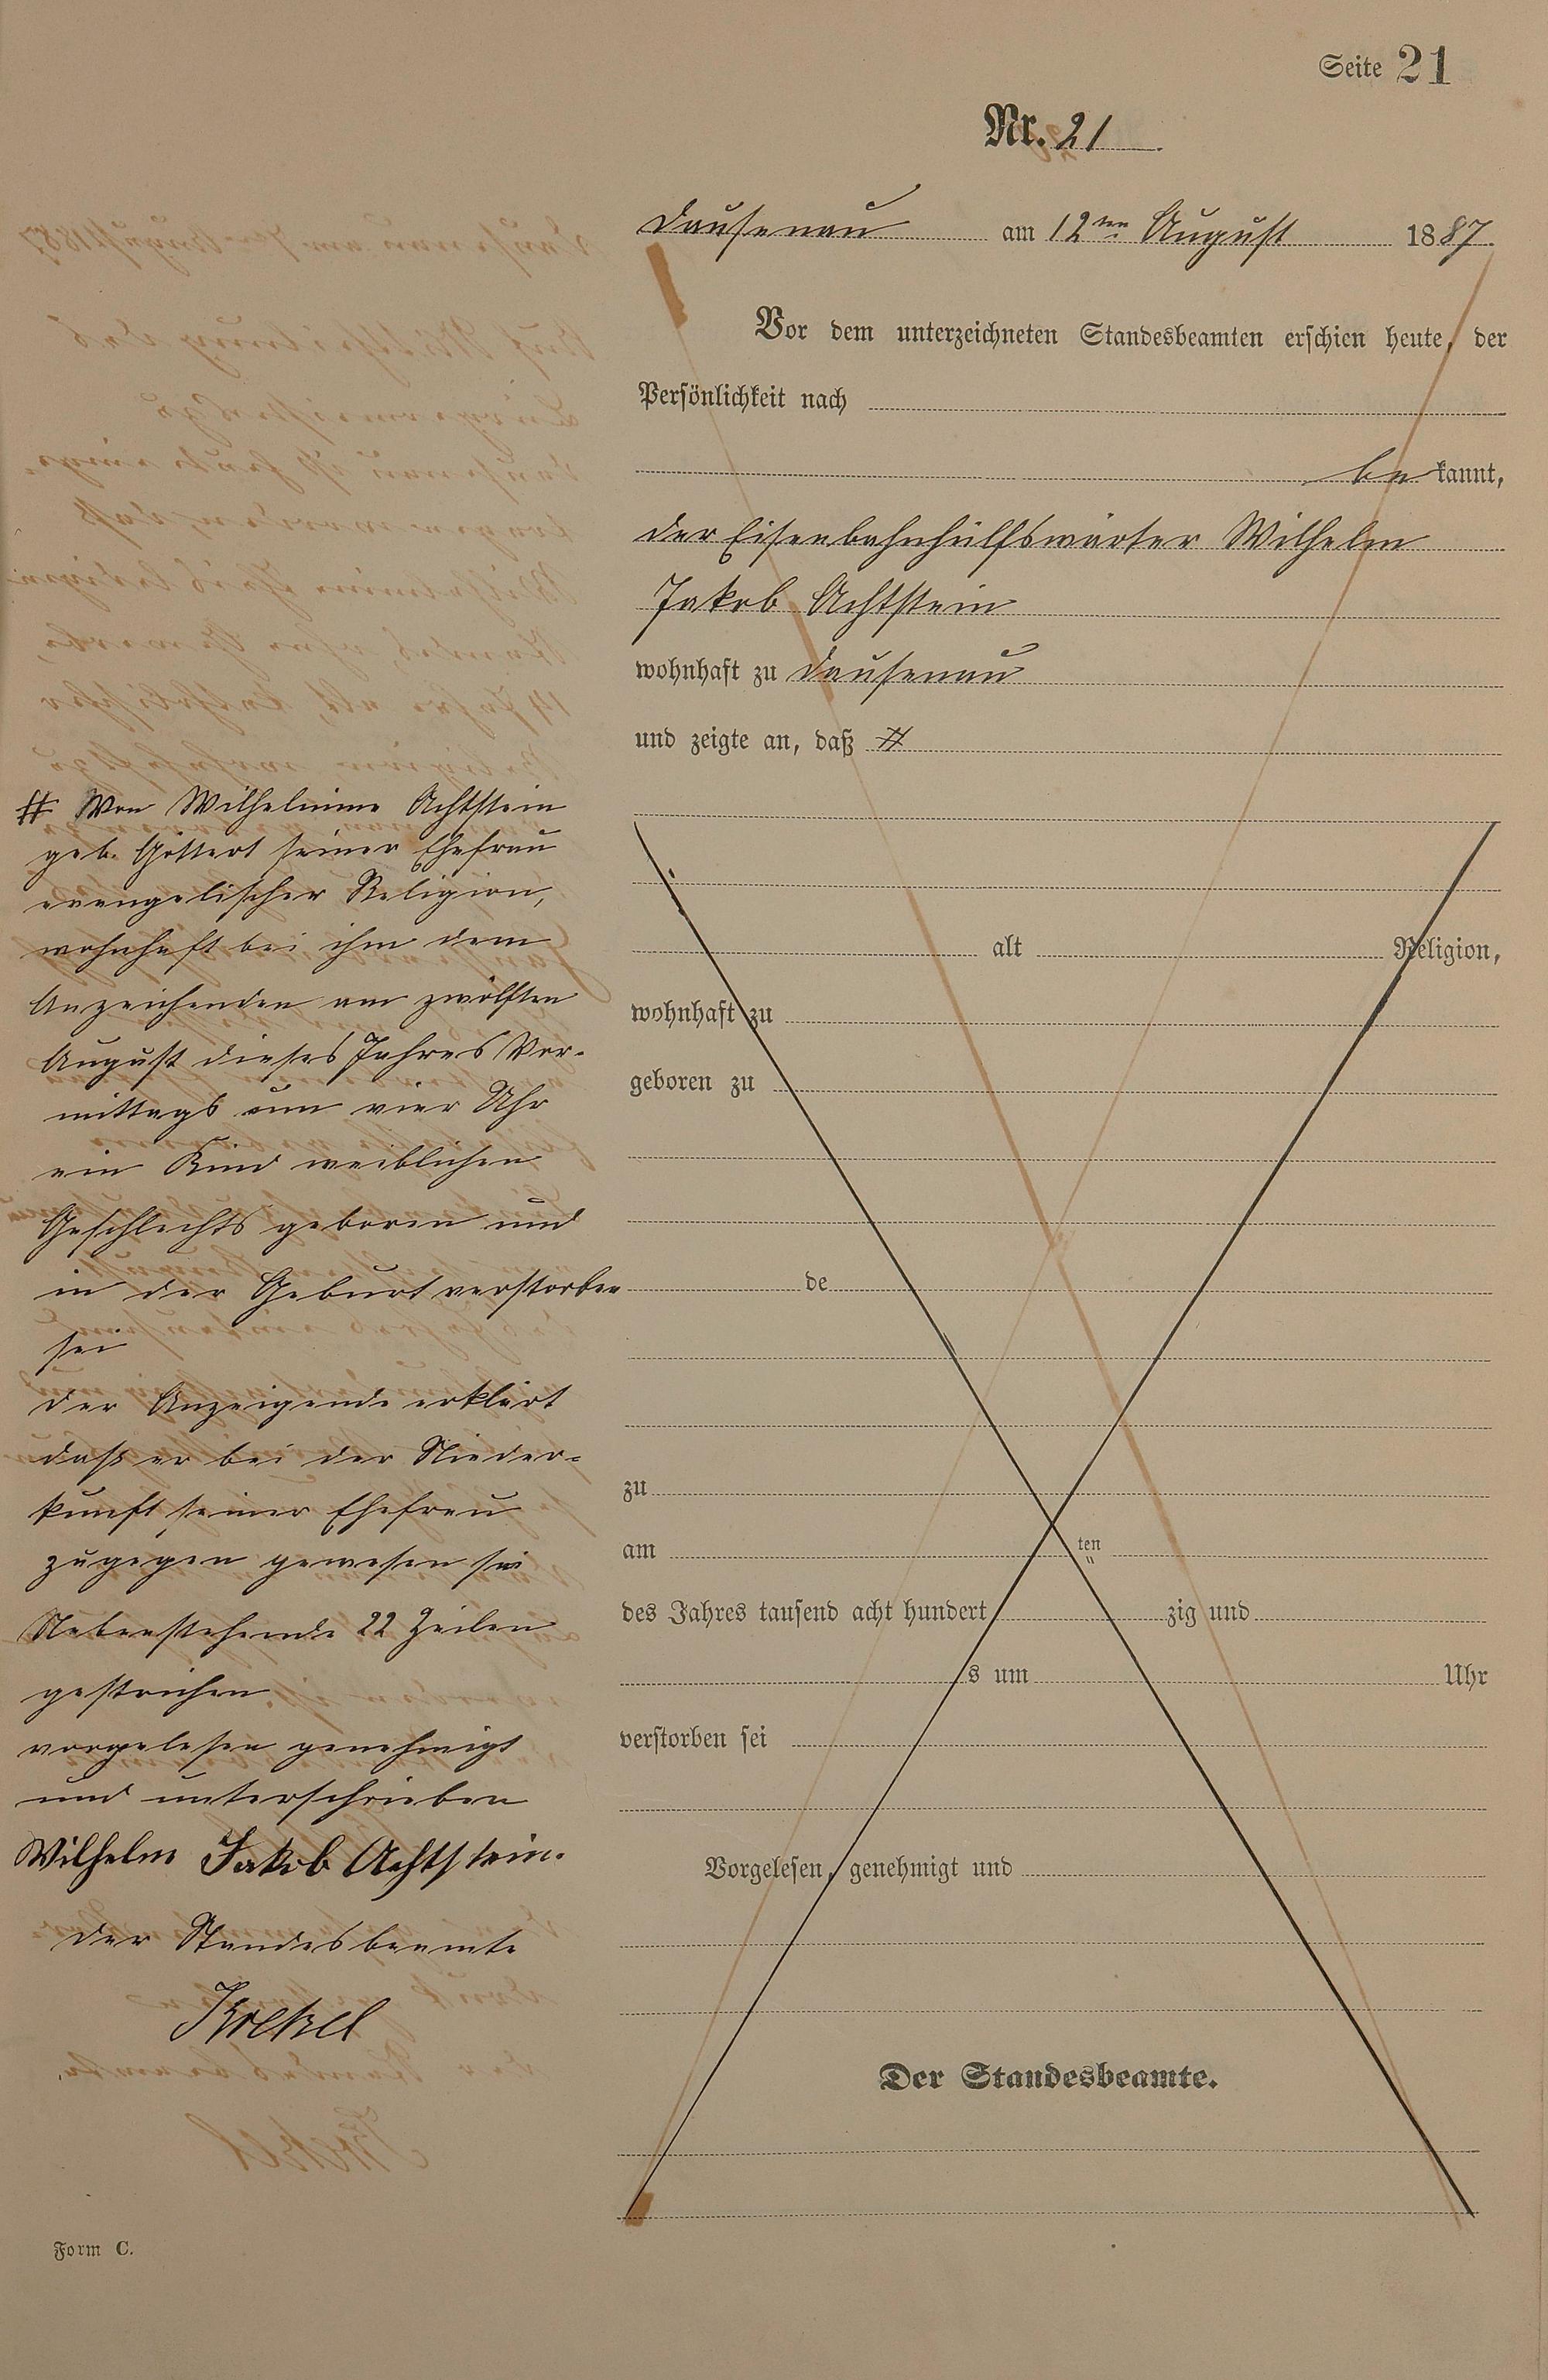 Seite 21
Nr. 21
Dausenau am 12ten August 1887.
Vor dem unterzeichneten Standesbeamten erschien heute, der
Persönlichkeit nach
be kannt,
der Eisenbahnhülfswärter Wilhelm
Jakob Achtstein
wohnhaft zu Dausenau
und zeigte an, daß #
alt Religion,
wohnhaft zu
geboren zu
de
zu
am ten
des Jahres tausend acht hundert zig und
s um Uhr
verstorben sei
Vorgelesen, genehmigt und
Der Standesbeamte.
# Von Wilhelmine Achtstein
geb. Göttert seiner Ehefrau
evangelischer Religion,
wohnhaft bei ihm dem
Anzeichenden am zwölften
August dieses Jahres Vor-
mittags um vier Uhr
ein Kind weiblichen
Geschlechts geboren und
in der Geburt verstorben
sei
der Anzeigende erklärt
daß er bei der Nieder-
kunft seiner Ehefrau
zugegen gewesen sei
Nebenstehende 22 Zeilen
gestrichen
vorgelesen genehmigt
und unterschrieben
Wilhelm Jakob Achtstein.
der Standesbeamte
Form C.